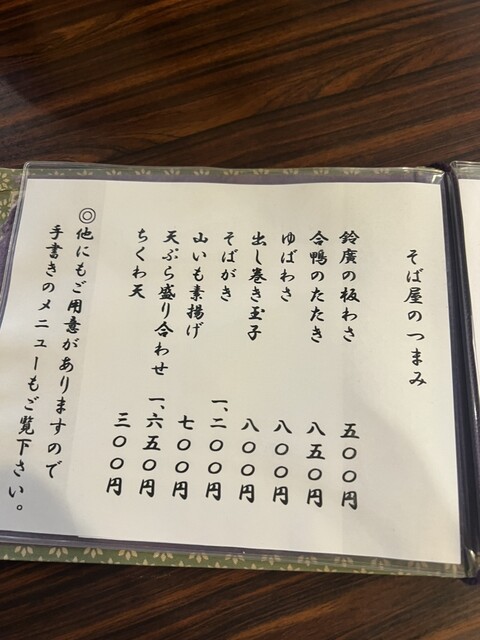 そば屋のつまみ
鈴廣の板わさ 五〇〇円
合鴨のたたき 八五〇円
ゆばわさ 八〇〇円
出し巻き玉子 八〇〇円
そばがき 一、二〇〇円
山いも素揚げ 七〇〇円
天ぷら盛り合わせ 一、六五〇円
ちくわ天 三〇〇円
◎他にもご用意がありますので
手書きのメニューもご覧下さい。